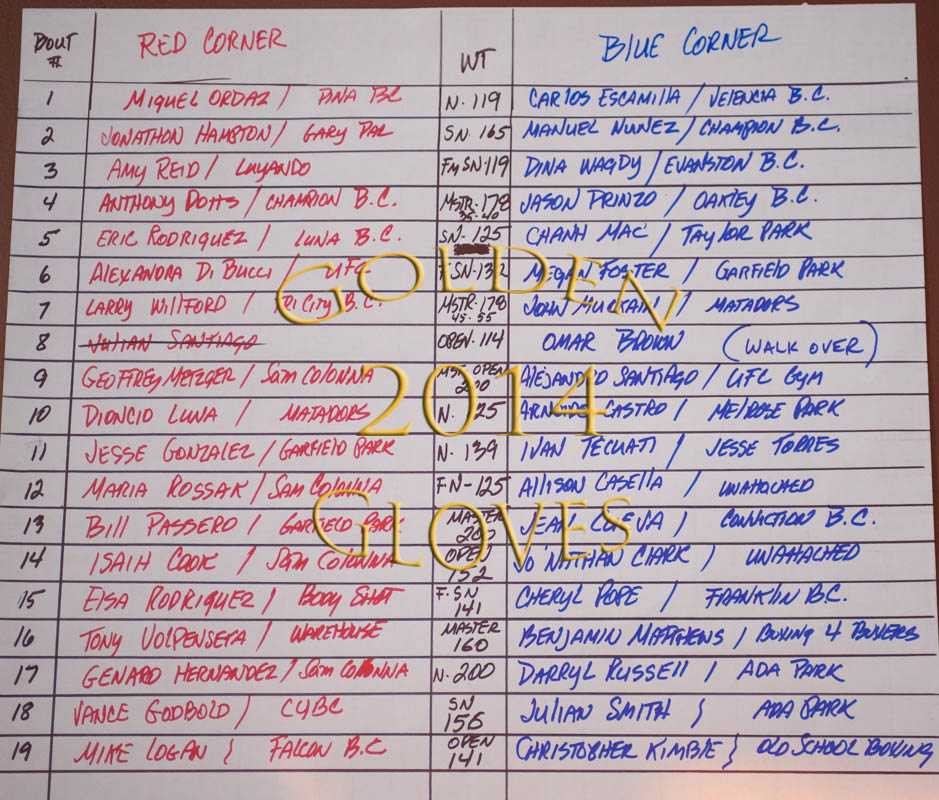 BOUT # RED CORNER WT BLUE CORNER
1 MIGUEL ORDAZ / PINA BC N. 119 CARLOS ESCAMILLA / VELENCIA B.C.
2 JONATHON HAMPTON / GARY PAL SN. 165 MANUEL NUNEZ / CHAMPION B.C.
3 AMY REID / LUYANDO FM SN. 119 DINA WAGDY / EVANSTON B.C.
4 ANTHONY DOTTS / CHAMPION B.C. MSTR. 178 35-40 JASON PRINZO / OAKLEY B.C.
5 ERIC RODRIQUEZ / LUNA B.C. SN- 125 CHANH MAC / TAYLOR PARK
6 ALEXANDRA DI BUCCI / UFC F SN-132 MEGAN FOSTER / GARFIELD PARK
7 LARRY WILLFORD / TRI CITY B.C. MSTR. 178 45-55 JOHN / MATADORS
8 JULIAN SANTIAGO OPEN. 114 OMAR BROWN (WALK OVER)
9 GEOFFREY METZGER / SAM COLONNA MST OPEN 200 ALEJANDRO SANTIAGO / UFC GYM
10 DIONCIO LUNA / MATADORS N. 125 ARNULFO CASTRO / MELROSE PARK
11 JESSE GONZALEZ / GARFIELD PARK N. 139 IVAN TECUATI / JESSE TORRES
12 MARIA ROSSAK / SAM COLONNA FN-125 ALLISON CASELLA / UNATTACHED
13 BILL PASSERO / GARFIELD PARK MASTER 200 JEAN / CONVICTION B.C.
14 ISAIH COOK / SAM COLONNA OPEN 152 JO'NATHAN CLARK / UNATTACHED
15 ELSA RODRIQUEZ / BODY SHOT F. SN 141 CHERYL POPE / FRANKLIN B.C.
16 TONY VOLPENSETA / WAREHOUSE MASTER 160 BENJAMIN MATTHENS / BOXING 4 BOXERS
17 GENARO HERNANDEZ / SAM COLONNA N. 200 DARRYL RUSSELL / ADA PARK
18 VANCE GODBOLD / CYBC SN 156 JULIAN SMITH } ADA PARK
19 MIKE LOGAN } FALCON B.C OPEN 141 CHRISTOPHER KIMBLE } OLD SCHOOL BOXING
GOLDEN
2014
GLOVES